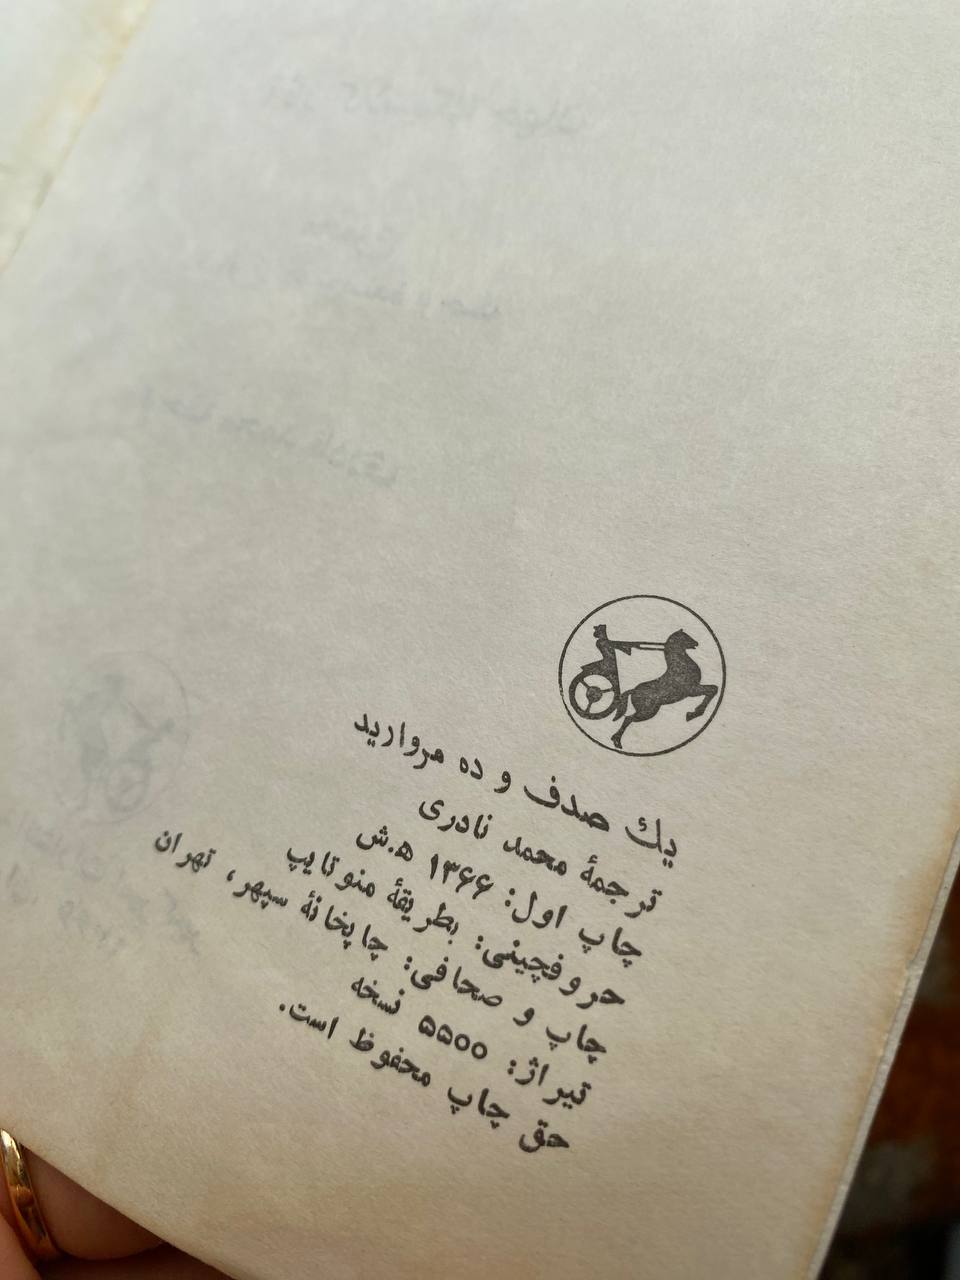 یك صدف و ده مروارید
ترجمهٔ محمد نادری
چاپ اول: ۱۳۶۶ ه‍.ش
حروفچینی: بطریقهٔ منوتایپ
چاپ و صحافی: چاپخانهٔ سپهر، تهران
تیراژ: ۵۵۰۰ نسخه
حق چاپ محفوظ است.